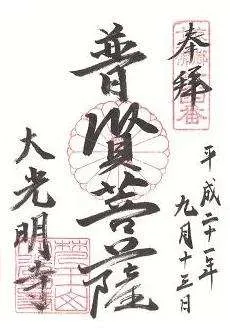 奉拝
平成二十一年
九月十三日
普賢菩薩
大光明寺